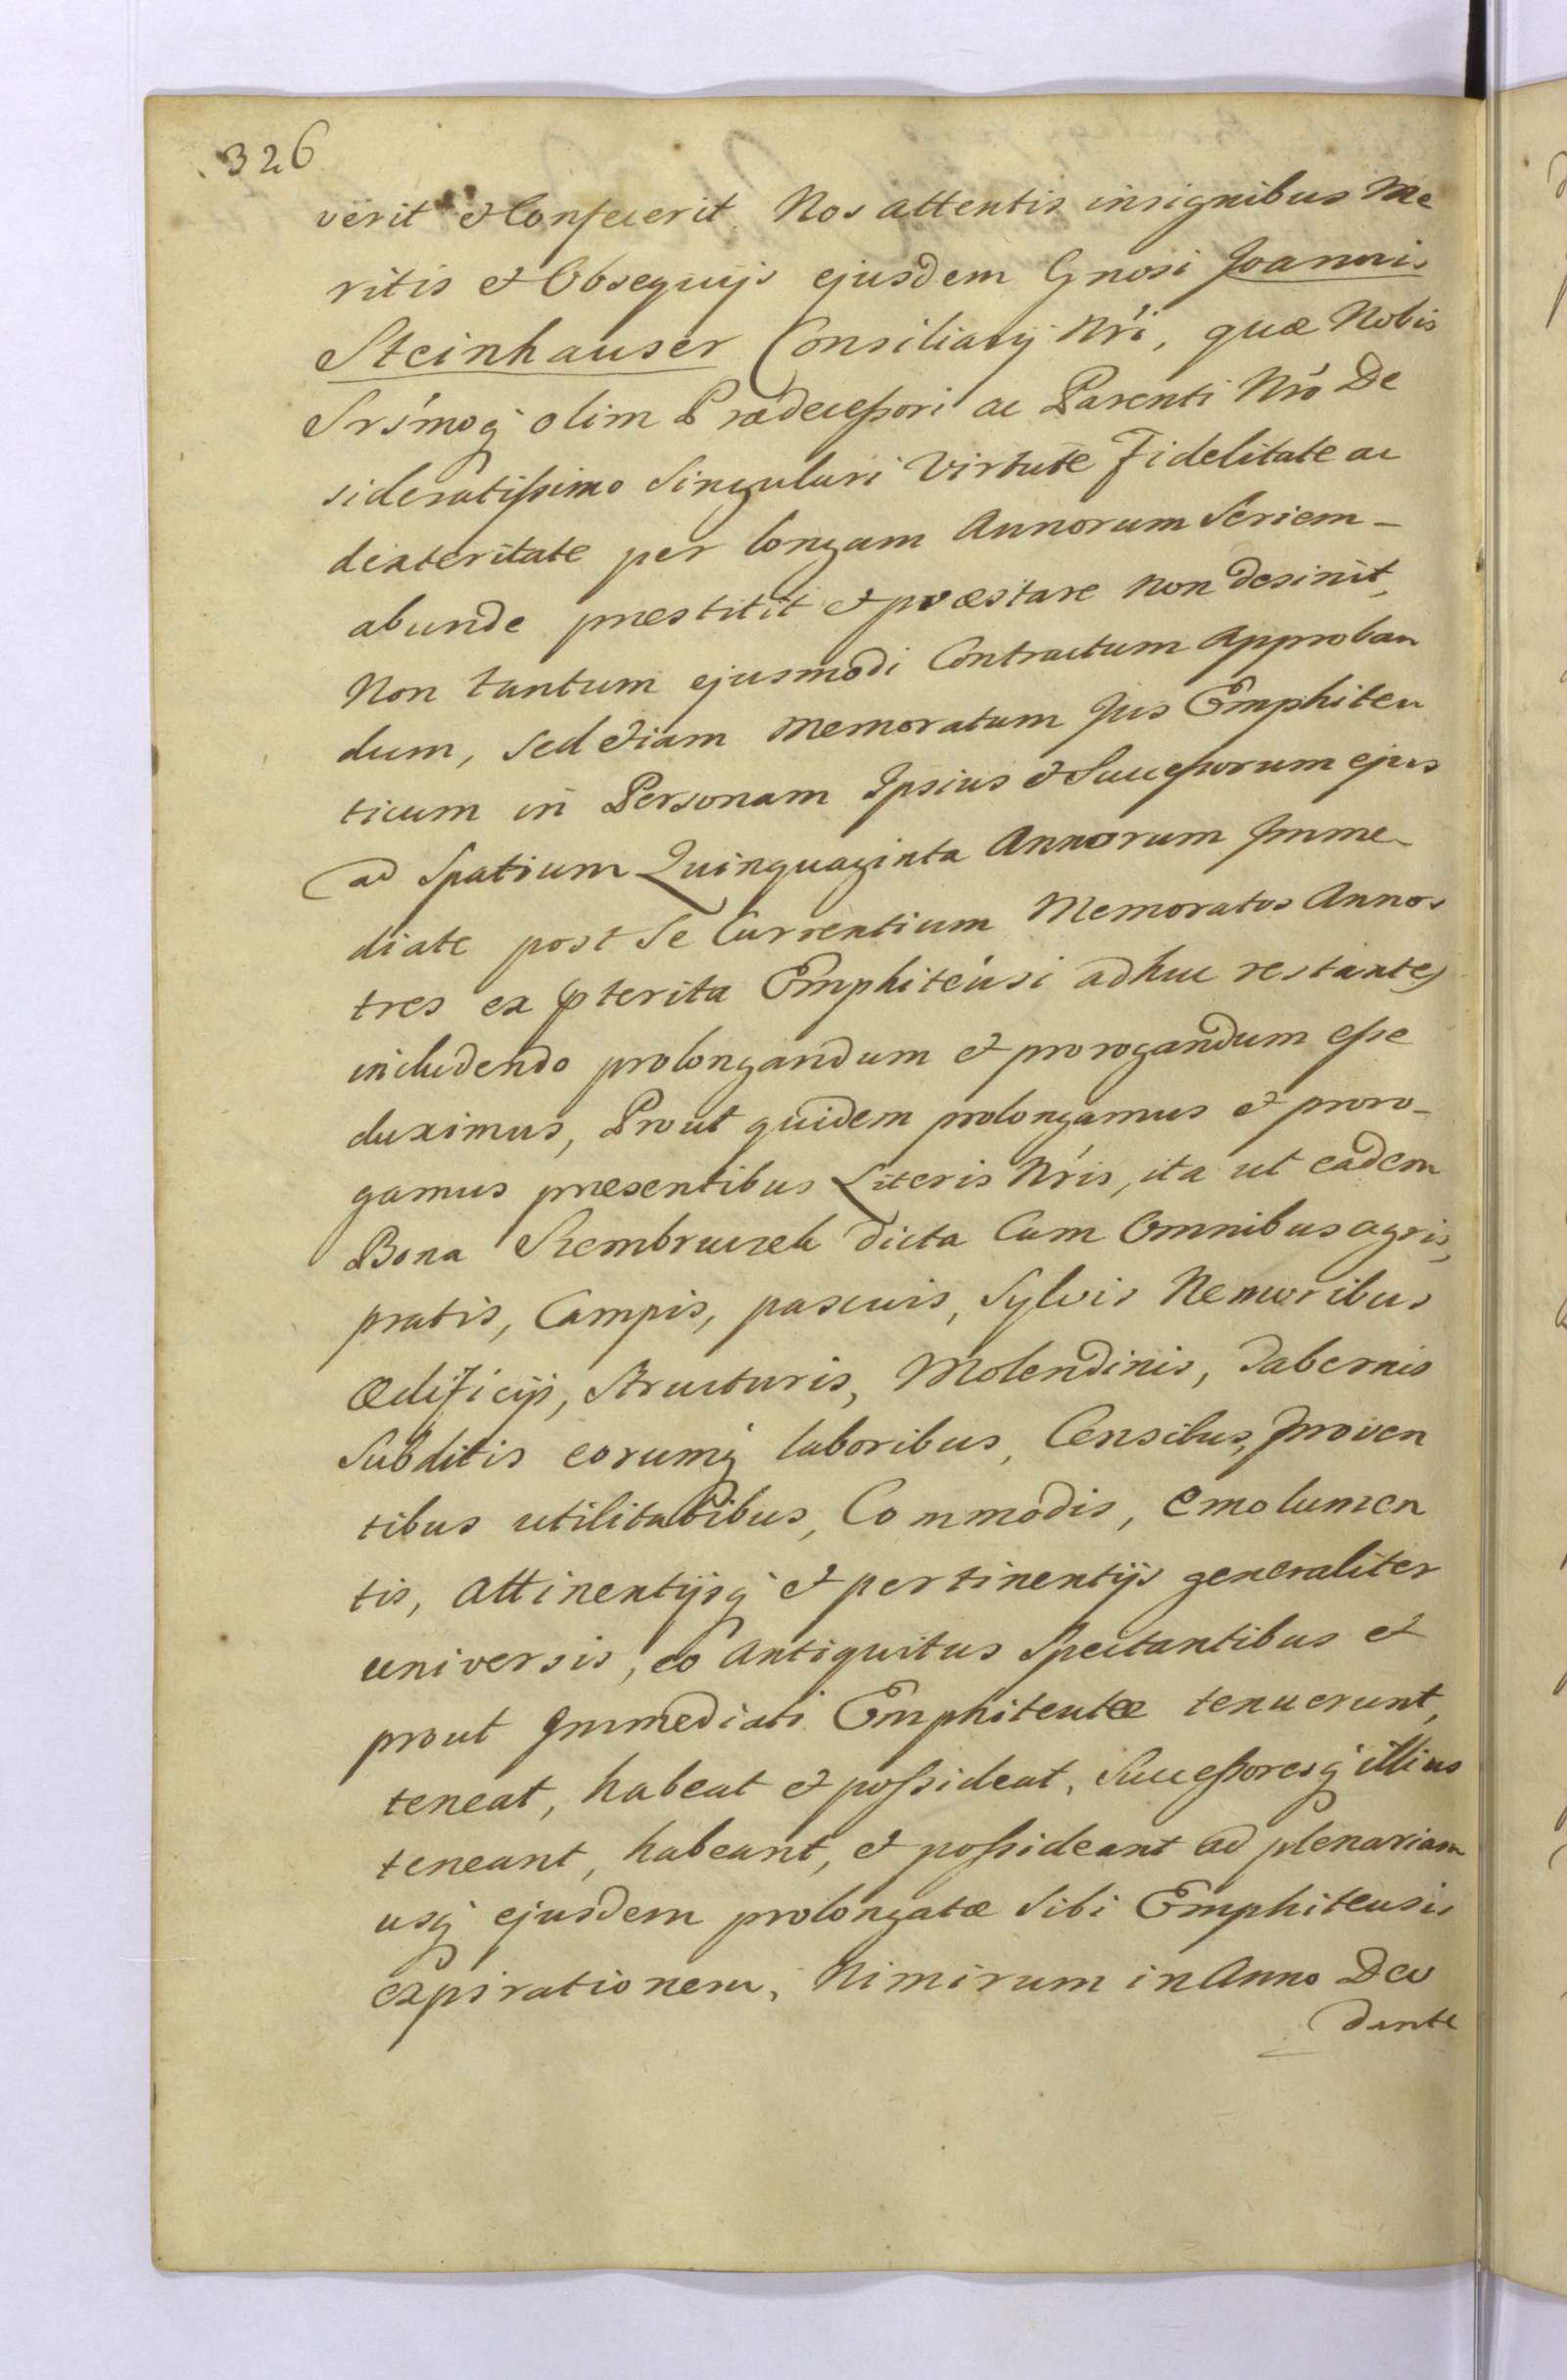 326
verit et Confecerit. Nos attentis insignibus Me
ritis et Obsequijs ejusdem Gnosi Joannis
Steinhauser Consiliarij Nri, quæ Nobis
Srsmoq olim Prædecessori ac Parenti Nro De
sideratissimo Singulari Virtute Fidelitate ac
dexteritate per longam Annorum Seriem-
abunde præstitit et præstare non desinit,
Non tantum ejusmodi Contractum Approban
dum, sed etiam Memoratum Jus Emphiteu
ticum in Personam Ipsius et Successorum ejus
ad Spatium Quinquaginta Annorum Imme-
diate post se Currentium Memoratos Annos
tres ex pterita Emphiteusi adhuc restantes
includendo prolongandum et prorogandum esse
duximus, Prout quidem prolongamus et proro-
gamus præsentibus Literis Nris, ita ut eadem
Bona Szembruczek dicta Cum Omnibus agris,
pratis, Campis, pascuis, Sylvis Nemoribus
Ædificijs, Structuris, Molendinis, Tabernis
Subditis eorumq laboribus, Censibus, proven
tibus utilitatibus, Commodis, emolumen
tis, attinentijsq et pertinentijs generaliter
universis, eo Antiquitus Spectantibus et
prout Immediati Emphiteutæ tenuerunt,
teneat, habeat et possideat, Successoresq illius
teneant, habeant, et possideant ad plenariam
usq ejusdem prolongatæ Sibi Emphiteusis
expirationem, Nimirum in Anno Deo
dante